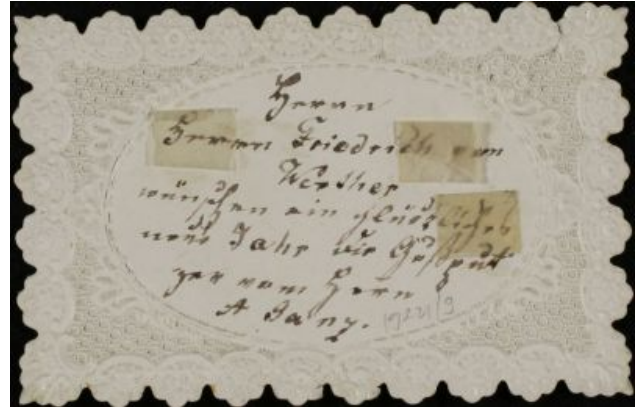 Herrn
Herrn Friedrich von
Werther
wünschen ein glückliches
neues Jahr die
vom Herrn
A Janz.